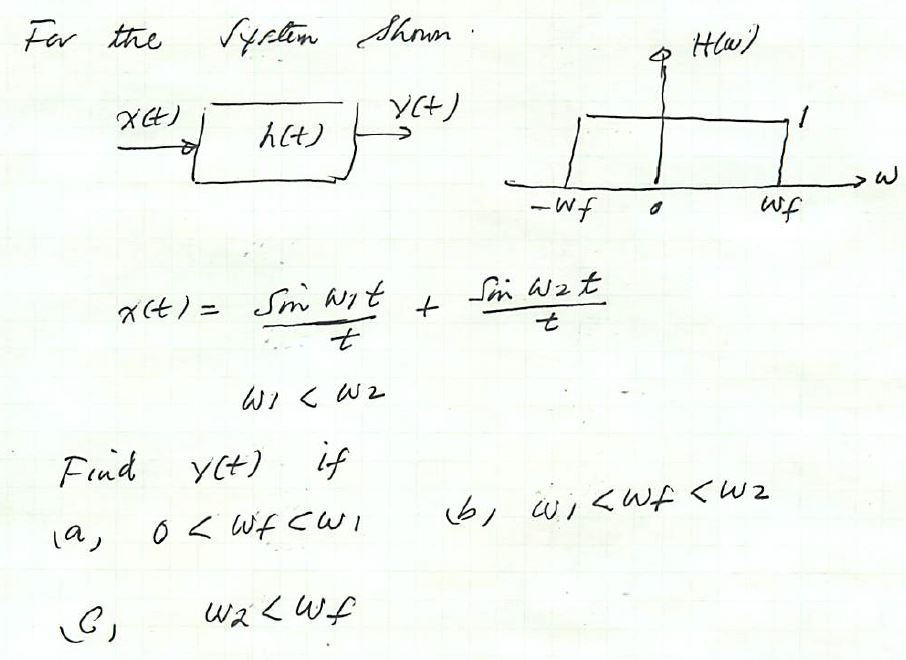 For the System Shown.
H(ω)
x(t) h(t) Y(t)
1
-ωf 0 ωf ω
x(t) = Sin ω1t / t + Sin ω2t / t
ω1 < ω2
Find Y(t) if
(a, 0 < ωf < ω1 (b, ω1 < ωf < ω2
(C, ω2 < ωf